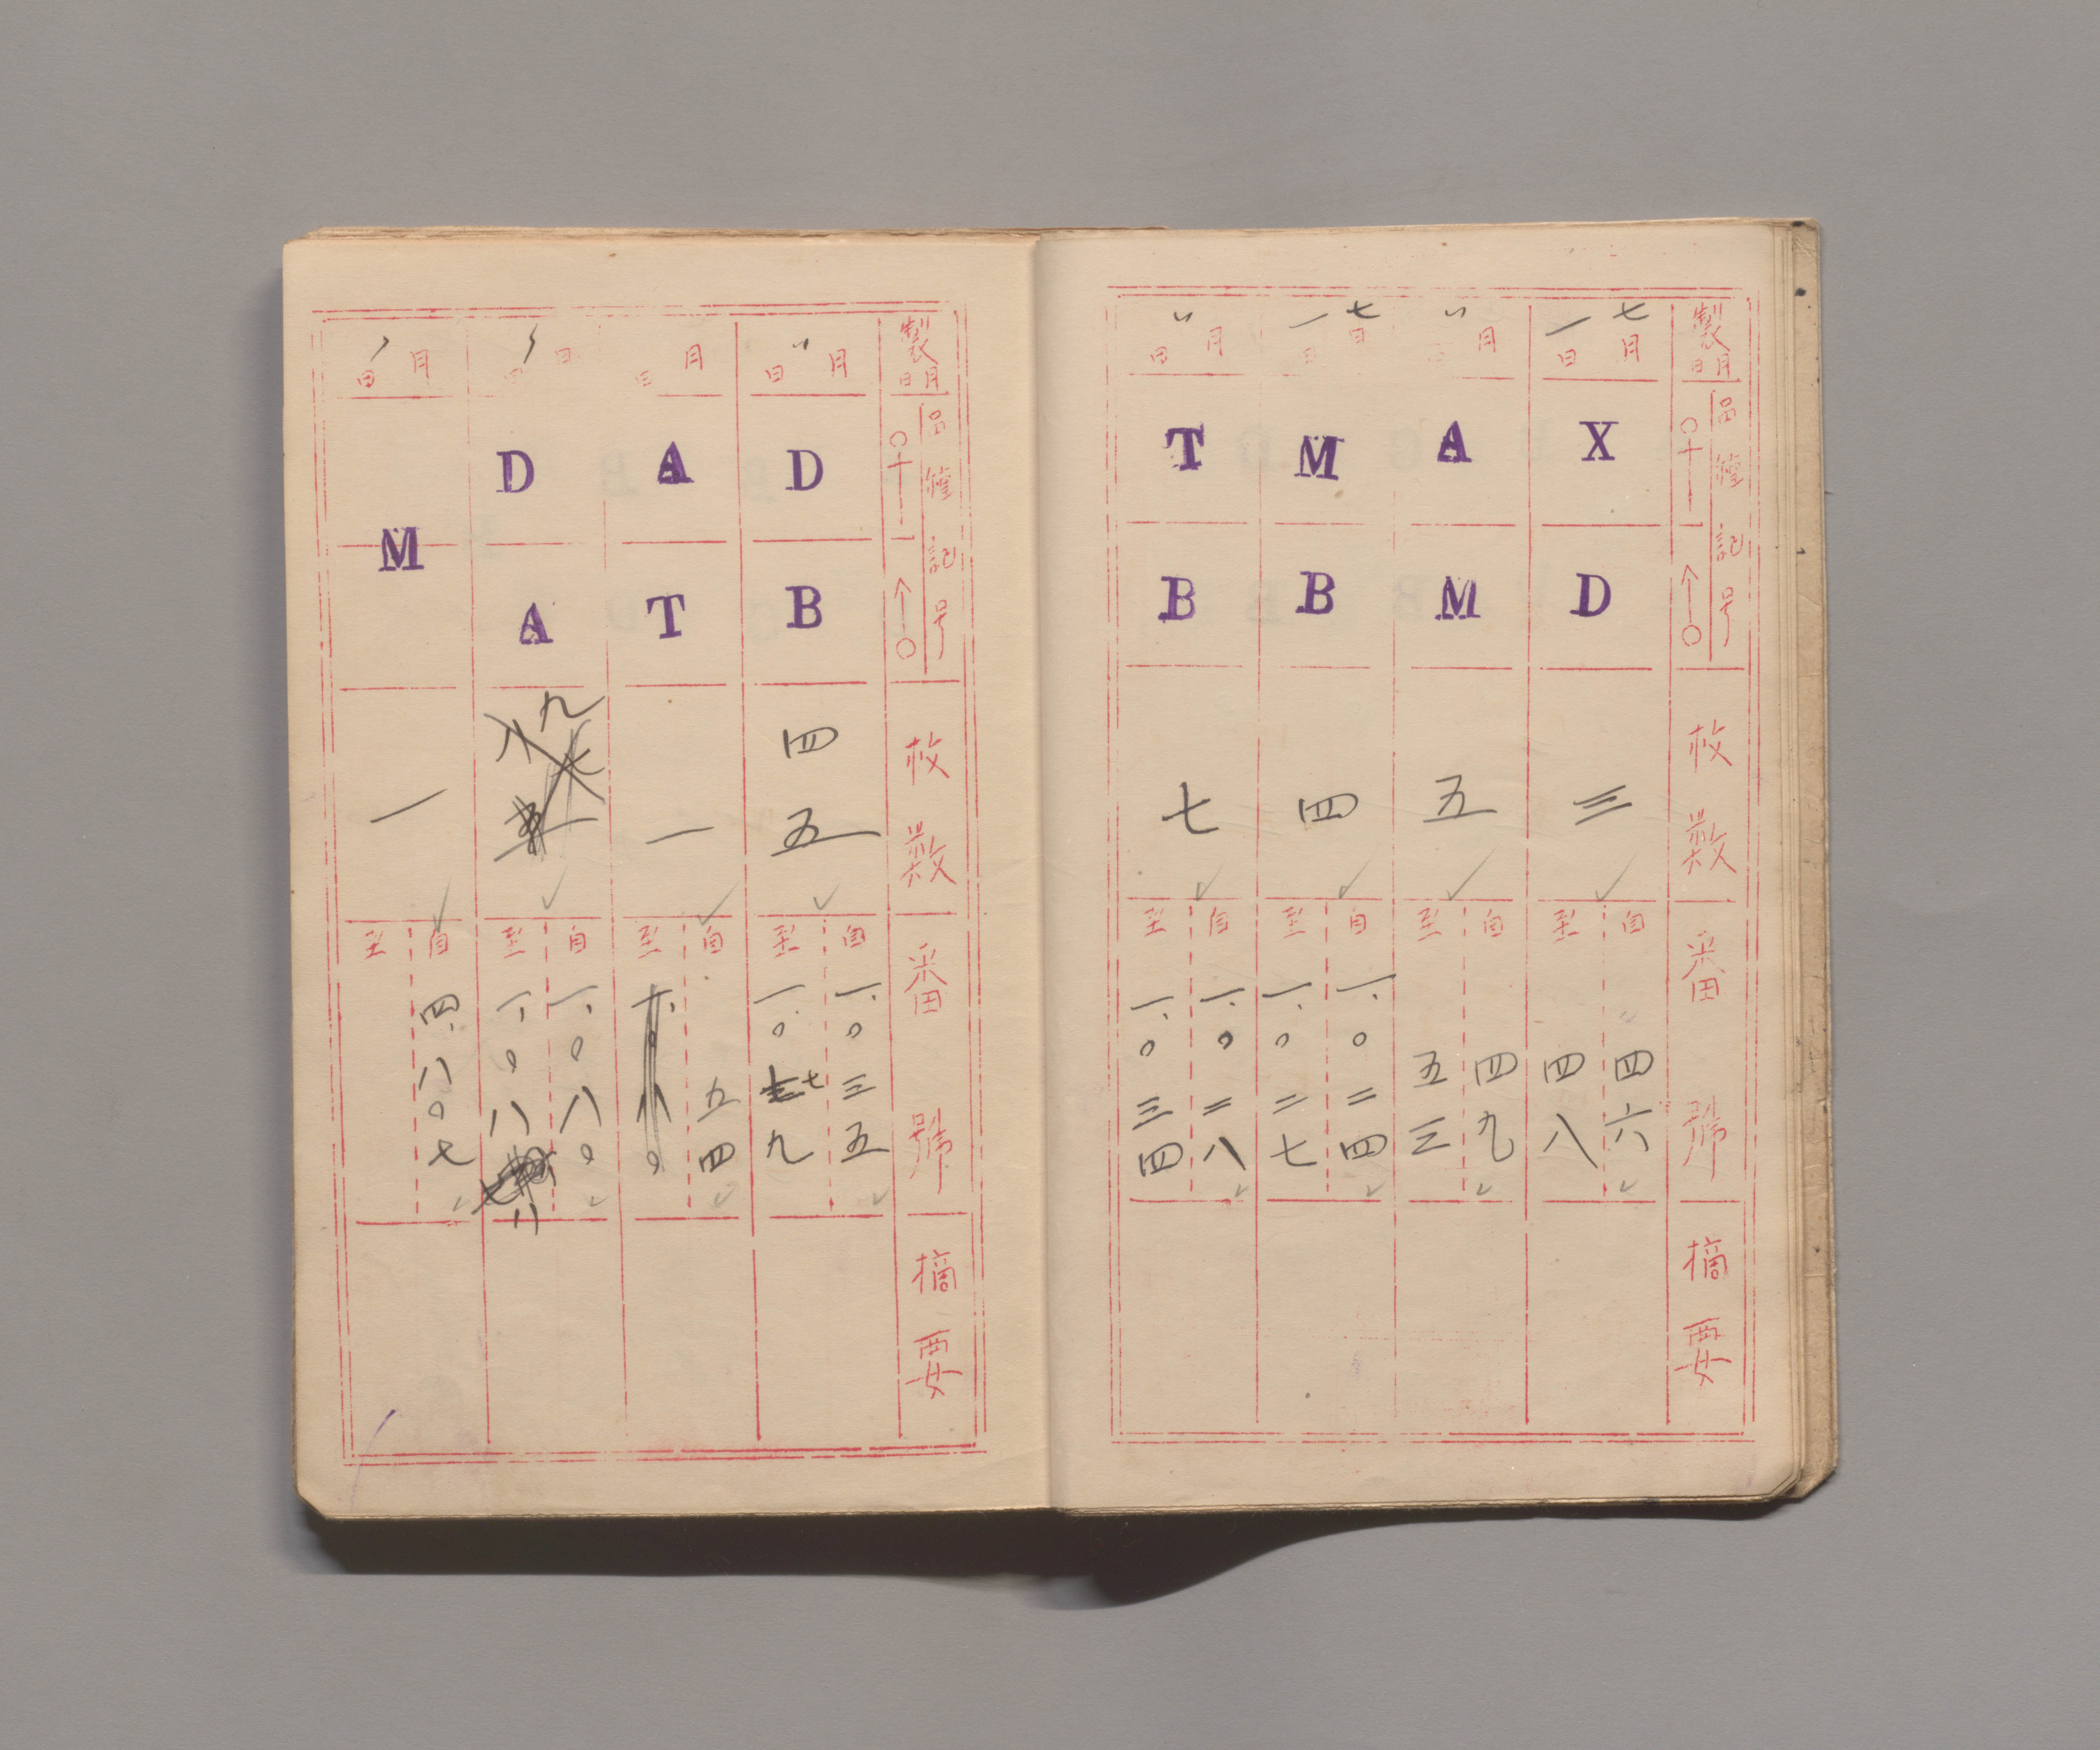 製月日
品種記号
枚数
番號
摘要
七月一日
X
D
三
自 四六
至 四八
〃月日
A
M
五
自 四九
至 五三
七 一
M
B
四
自 一.〇二四
至 一.〇二七
〃月日
T
B
七
自 一.〇二八
至 一.〇三四
製月日
品種記号
枚数
番號
摘要
〃月日
D
B
四五
自 一.〇三五
至 一.〇七九
月日
A
T
一
自 五四
至
日
D
A
九
自 一.〇八〇
至 一.〇八八
月日
M
一
自 四.八〇七
至